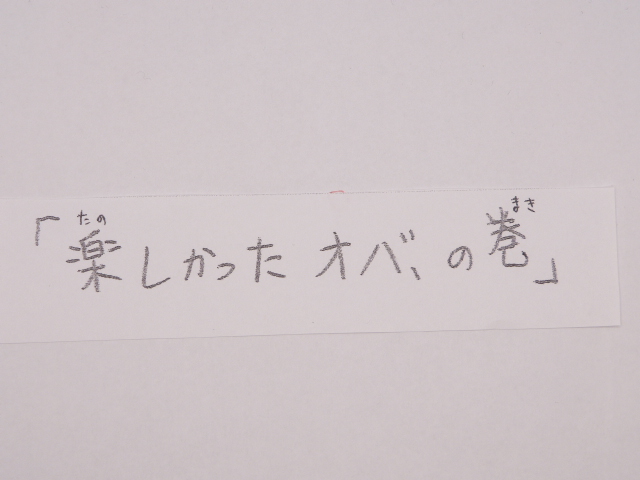 「楽しかったオバ、の巻」
たの
まき